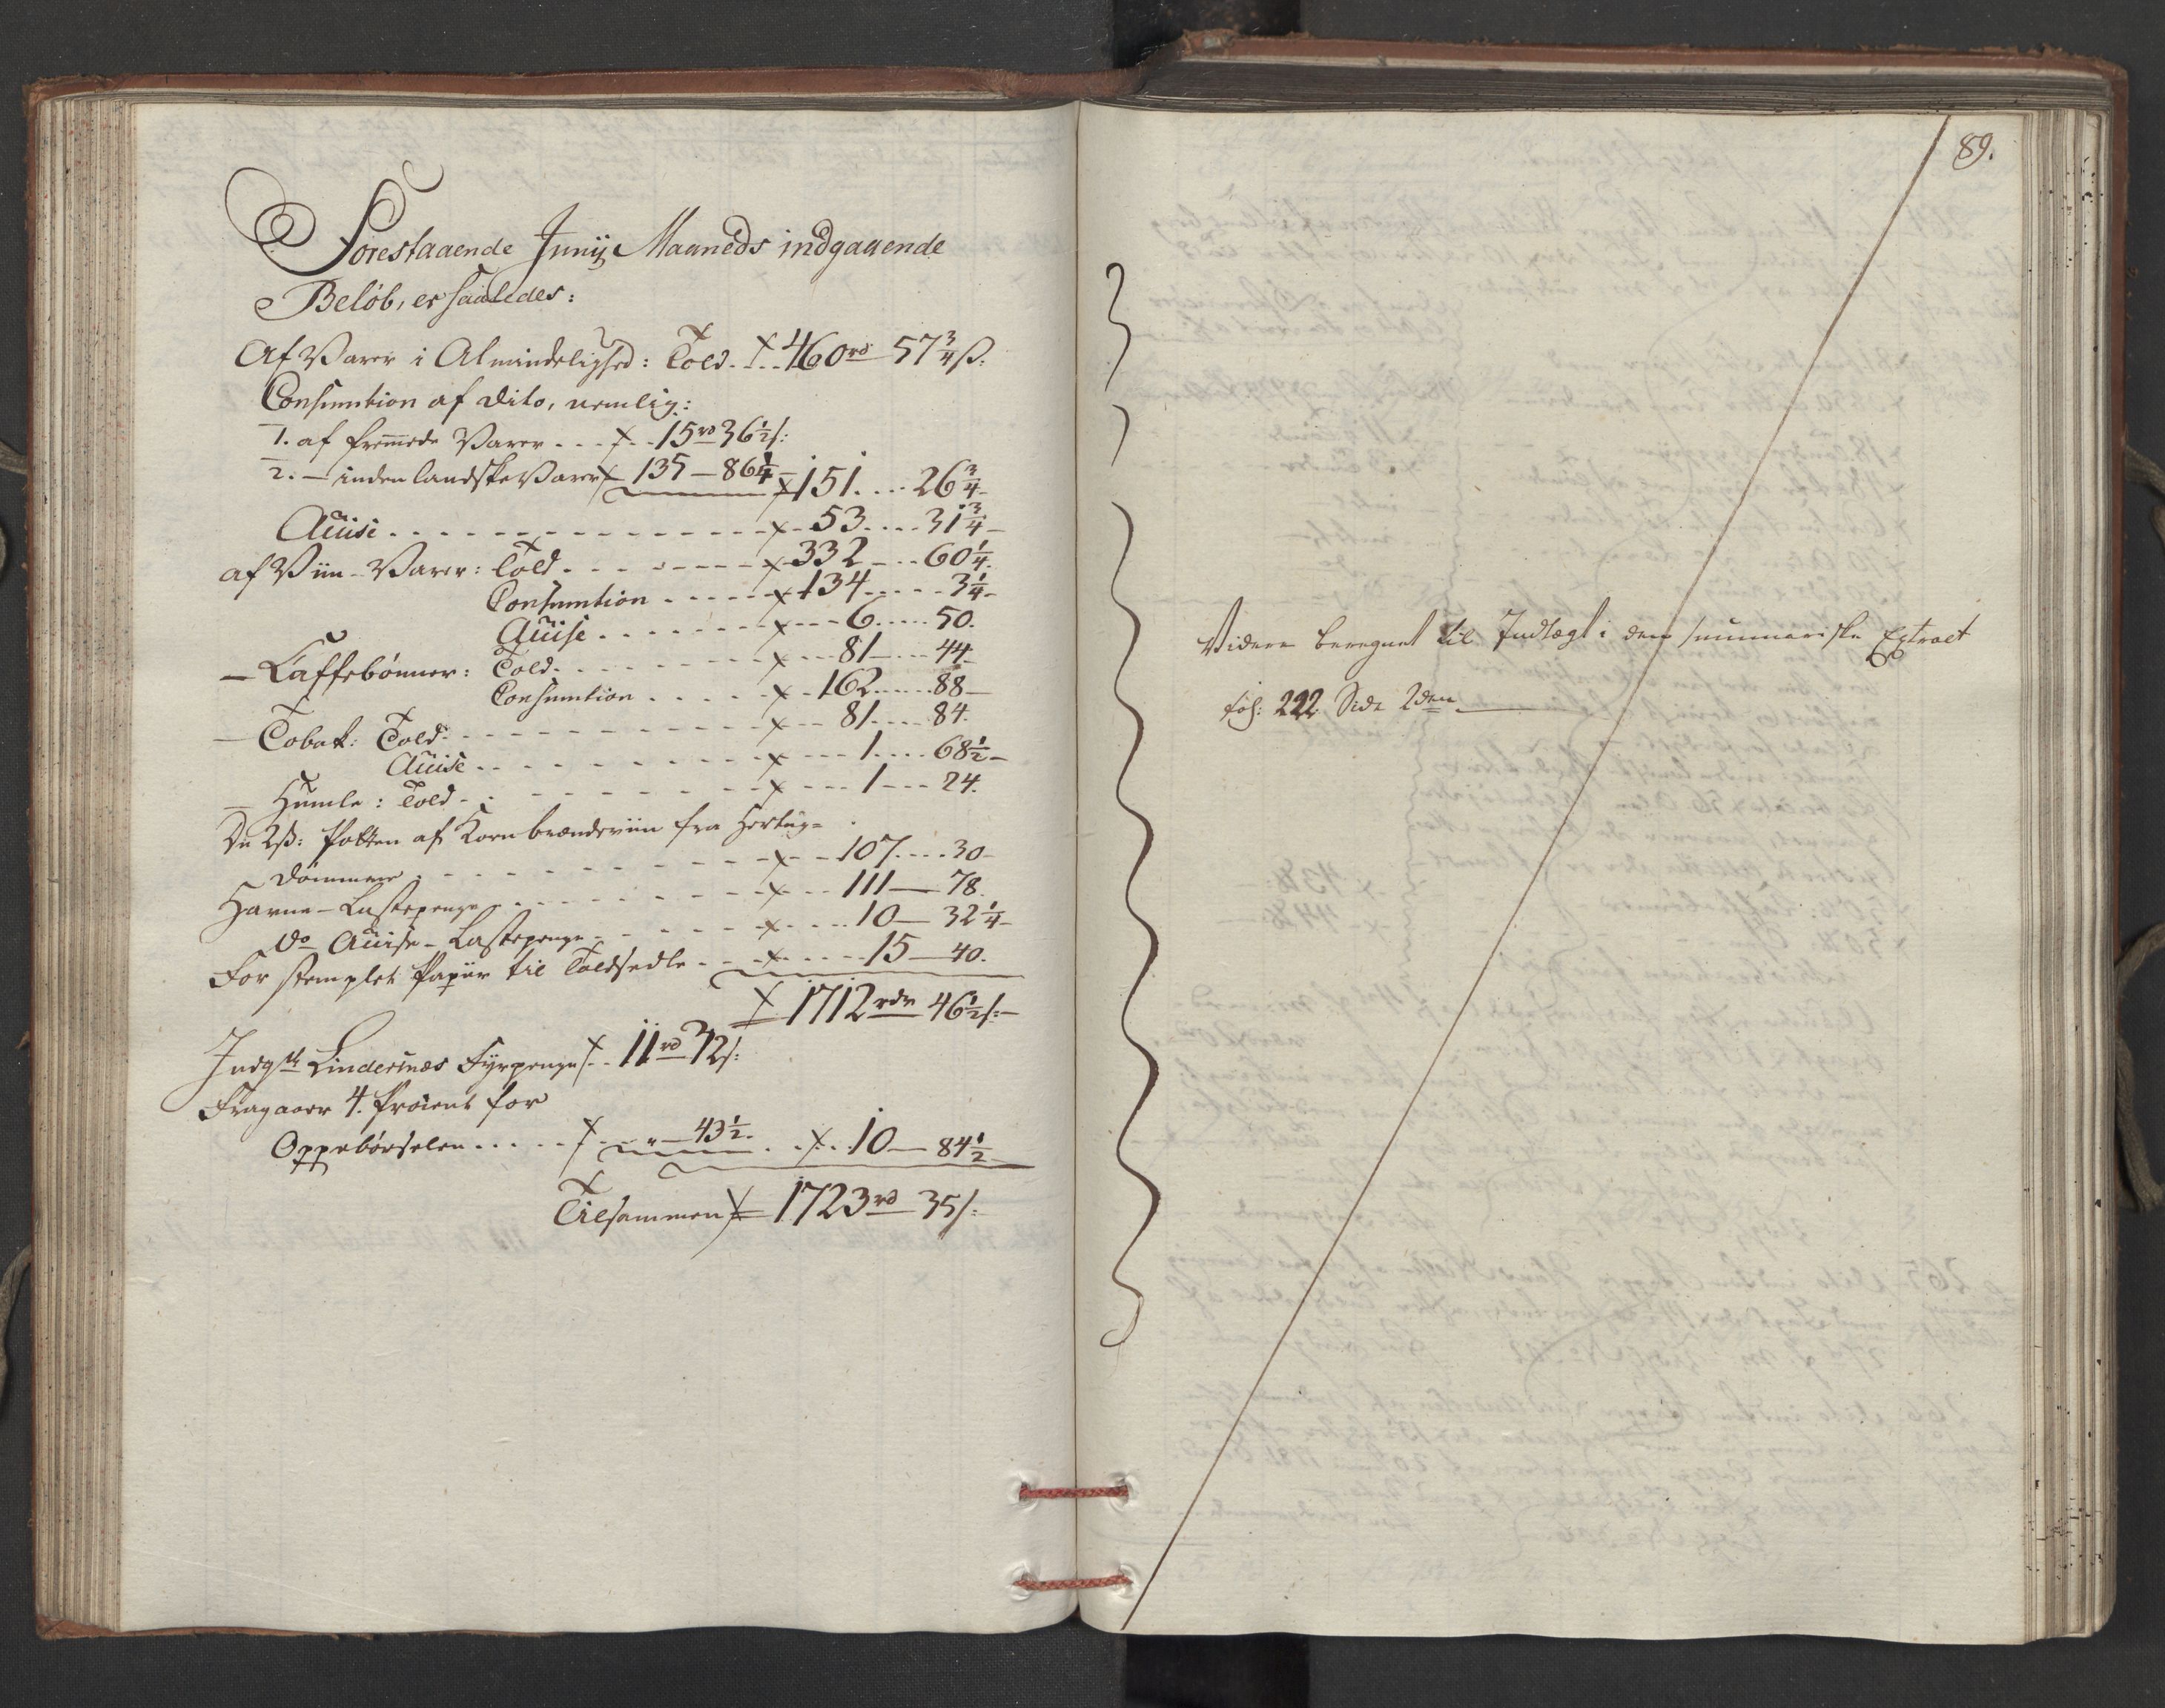 Forestaaende Junij Maaneds indgaaende
Beløb, er saaledes:
Af Varer i Almindelighed: Told . . . 460 rd 57 3/4 ß:
Consumtion af dito, nemlig:
1. af fremmede Varer . . . 15 rd 36 1/2 ß:
2. — indenlandske Varer 135 — 86 1/4 151 . . . 26 3/4
Accise . . . 53 . . . 31 3/4
af Viin-Varer: Told . . . 332 . . . 60 1/4
Consumtion . . . 134 . . . 3 1/4
Accise . . . 6 . . . 50.
— Caffebønner: Told . . . 81 . . . 44
Consumtion . . . 162 . . . 88
— Tobak: Told . . . 81 . . . 84.
Accise . . . 1 . . . 68 1/2
— Humle: Told . . . 1 . . . 24.
De 2ß: Potten af Kornbrændeviin fra Hertug=
dømmene . . . 107 . . . 30
Havne-Lastepenge . . . 111 — 78.
do Accise-Lastepenge . . . 10 — 32 1/4
For stemplet Papiir til Toldsedle . . . 15 — 40.
1712 rdr 46 1/2 ß:
Indg: Lindesnæs Fyrpenge . . 11 rd 32 ß:
Fragaaer 4. Procent for
Oppebørselen . . . „ — 43 1/2 . . . 10 — 84 1/2
Tilsammen 1723 rd 35 ß:
89.
Videre beregnet til Indtægt i den summariske Extract
fol: 222 Side 2den